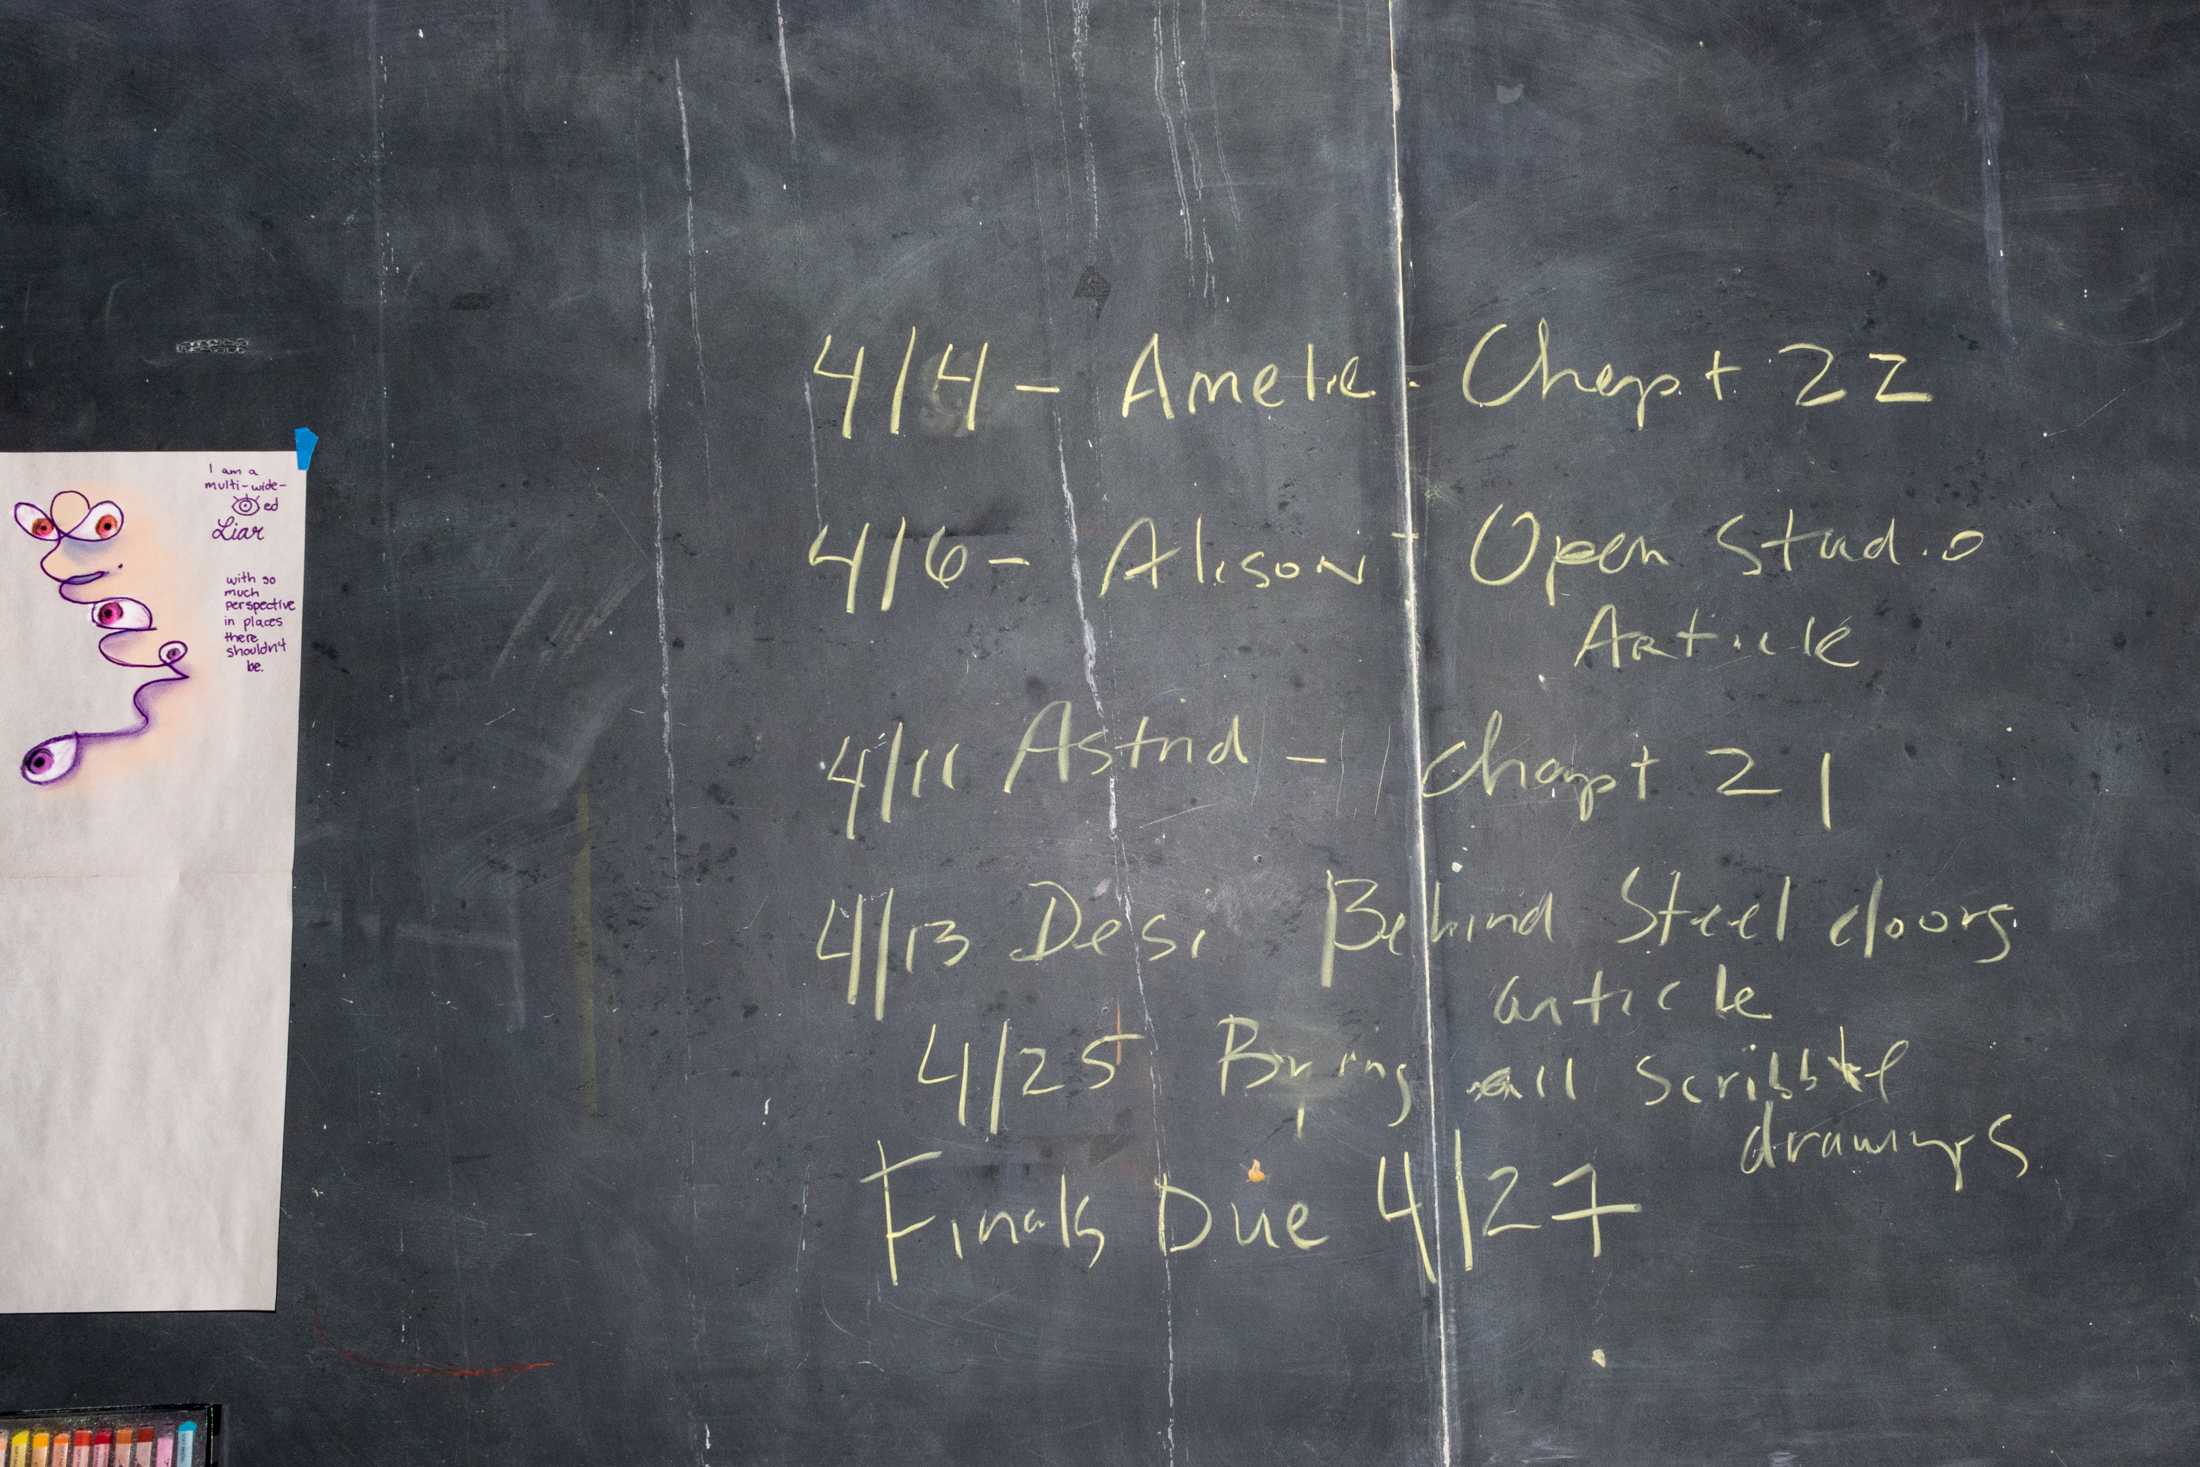 4/4 - Amelie - Chapt 22
4/6 - Alison - Open Studio
Article
4/11 Astrid - Chapt 21
4/13 Desi Behind Steel doors
article
4/25 Bring all Scribble
drawings
Finals Due 4/27
I am a
multi-wide-
ed
Liar
with so
much
perspective
in places
there
shouldn't
be.